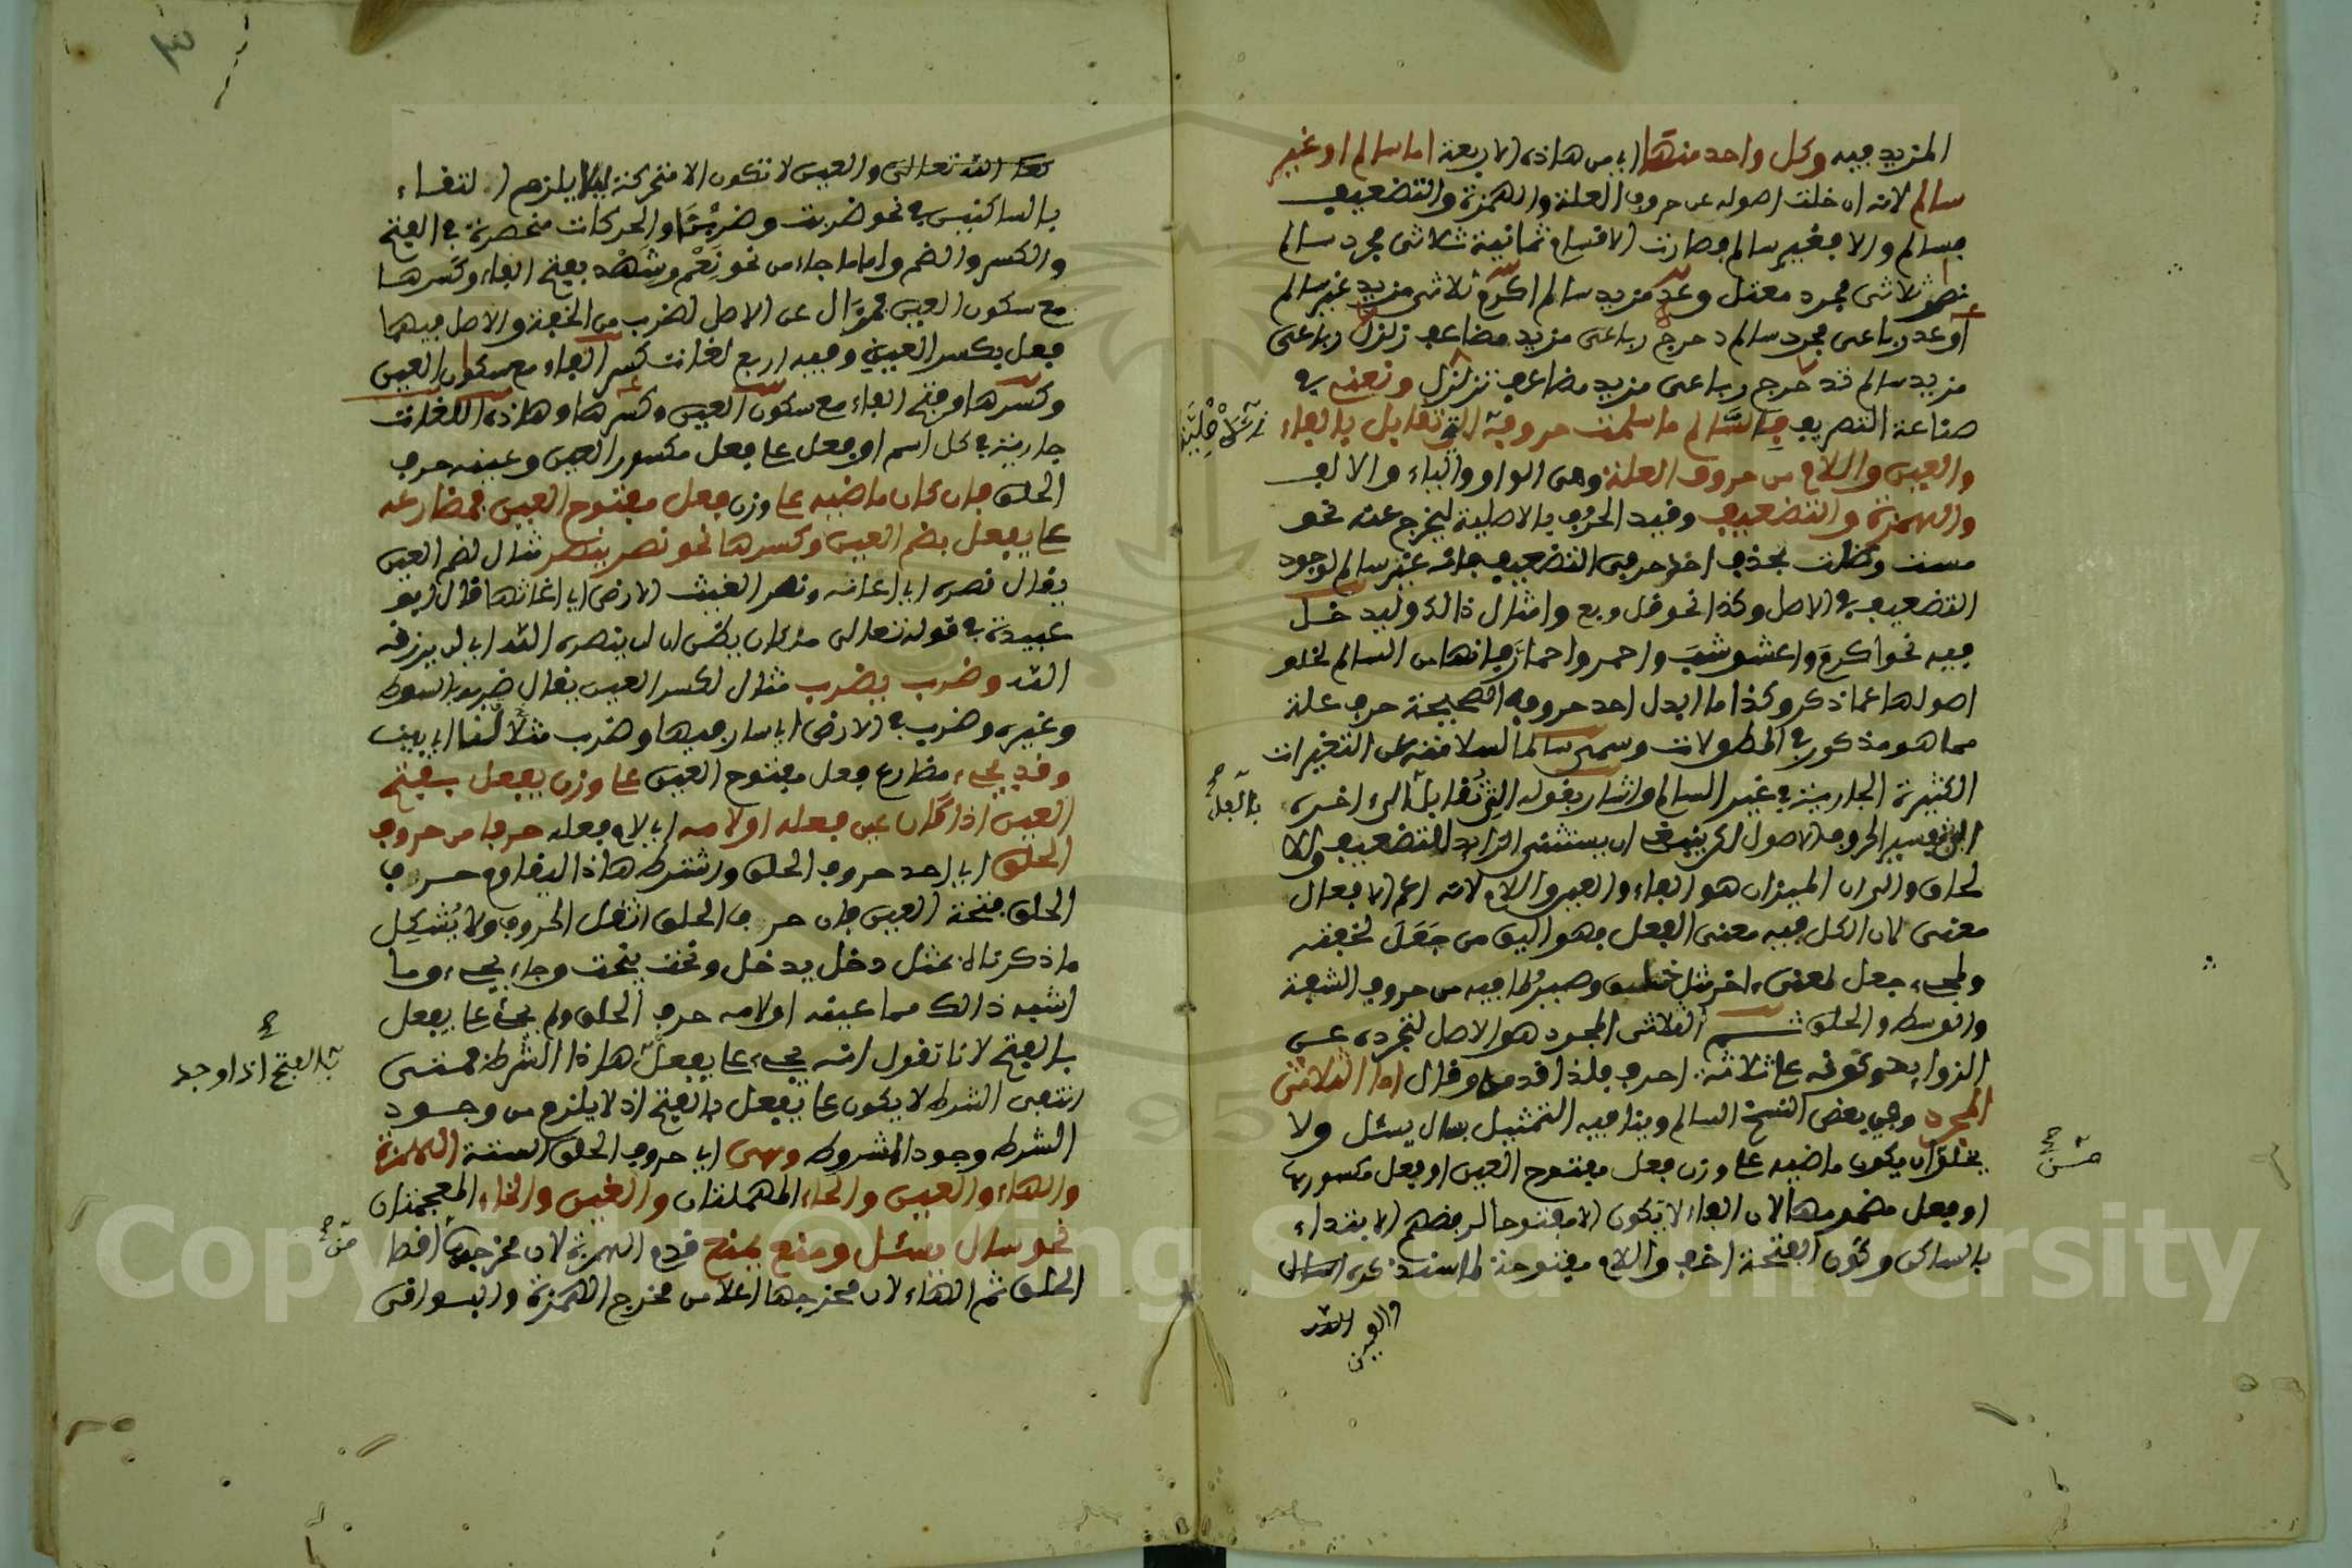 المزيد فيه وكل واحد منها اي من هاذه الاربعة اما سالم او غير
سالم لانه ان خلت اصوله عن حروف العلة والهمزة والتضعيف
فسالم والا فغير سالم فصارت الاقسام ثمانية ثلاثى مجرد سالم
نصر ثلاثى مجرد معتل وعد مزيد سالم اكرم ثلاثى مزيد غير سالم
أوعد رباعى مجرد سالم دحرج رباعى مزيد مضاعف زلزل رباعى
مزيد سالم تدحرج رباعى مزيد مضاعف تزلزل ونعنى في
صناعة التصريف بالسالم ما سلمت حروفه التي تقابل بالفاء
والعين واللام من حروف العلة وهى الواو والياء والالف
والهمزة والتضعيف وقيد الحروف بالاصلية ليخرج عنه نحو
مست وظلت بحذف احد حرفى التضعيف فانه غير سالم لوجود
التضعيف في الاصل وكذا نحو قل وبع وامثال ذالك وليدخل
فيه نحو اكرم واعشوشب واحمر واحمار فانها من السالم لخلو
اصولها عما ذكر وكذا ما ابدل احد حروفه الصحيحة حرف علة
مما هو مذكور في المطولات وسمى سالما لسلامته عن التغيرات
الكثيرة الجارية في غير السالم واشار بقوله التى تقابل الى اخره
الى تفسير الحروف الاصول لكن ينبغى ان يستثنى الزايد للتضعيف والا
لحاق والى ان الميزان هو الفاء والعين واللام لانه اعم الافعال
معنى لان الكل فيه معنى الفعل فهو اليق من جعل لخفته
ولمجىء جعل لمعنى اخر مثل خلق وصير لما فيه من حروف الشفة
والوسط والحلق ثم الثلاثى المجرد هو الاصل لتجرده عن
الزوايد وكونه على ثلاثة احرف فلذا قدمه وقال اما الثلاثى
المجرد وفي بعض النسخ السالم وينافيه التمثيل بسال يسئل ولا
يخلو ان يكون ماضيه على وزن فعل مفتوح العين او فعل مكسورها
او فعل مضمومها لان الفاء لا تكون الا مفتوحا لرفضهم الابتداء
بالساكن وكون الفتحة اخف واللام مفتوحة لما سنذكره
والعين
تعالى والعين لا تكون الا متحركة ليلا يلزم التقاء
بالساكنين في نحو ضربت وضربنا والحركات منحصرة في الفتح
والكسر والضم واما ما جاء من نحو نعم وشهد بفتح الفاء وكسرها
مع سكون العين فمزال عن الاصل لضرب من الخفة والاصل فيهما
فعل بكسر العين وفيه اربع لغات كسر الفاء مع سكون العين
وكسرها وفتح الفاء مع سكون العين وكسرها وهاذه اللغات
جارية في كل اسم او فعل على فعل مكسور العين وعينه حرف
الحلق فان كان ماضيه على وزن فعل مفتوح العين فمضارعه
على يفعل بضم العين وكسرها نحو نصر ينصر مثال لضم العين
يقال نصره اي اعانه ونصر الغيث الارض اي اغاثها قال ابو
عبيدة في قوله تعالى من كان يظن ان لن ينصره الله اي لن يرزقه
الله وضرب يضرب مثال لكسر العين يقال ضربه بالسوط
وغيره وضرب في الارض اي سار فيها وضرب مثلا لنا اي بين
وقد يجىء مضارع فعل مفتوح العين على وزن يفعل بفتح
العين اذا كان عين فعله او لامه اي لام فعله حرفا من حروف
الحلق اي احد حروف الحلق واشترط هاذا ليقاوم حرف
الحلق فتحة العين فان حرف الحلق اثقل الحروف ولا يشكل
ما ذكرناه بمثل دخل يدخل ونحت ينحت وجاء يجىء وما
اشبه ذالك مما عينه او لامه حرف الحلق ولم يجئ على يفعل
بالفتح لانا نقول انه يجىء على يفعل هاذا الشرط فمتى
انتفى الشرط لا يكون على يفعل بالفتح اذ لا يلزم من وجود
الشرط وجود المشروط وهى اي حروف الحلق الستة الهمزة
والهاء والعين والحاء المهملتان والغين والخاء المعجمتان
نحو سال يسئل ومنع يمنع قدم الهمزة لان مخرجها اقصا
الحلق ثم الهاء لان مخرجها اعلا من مخرج الهمزة والبواقى
بالفتح اذا وجد
Copyright © King Saud University